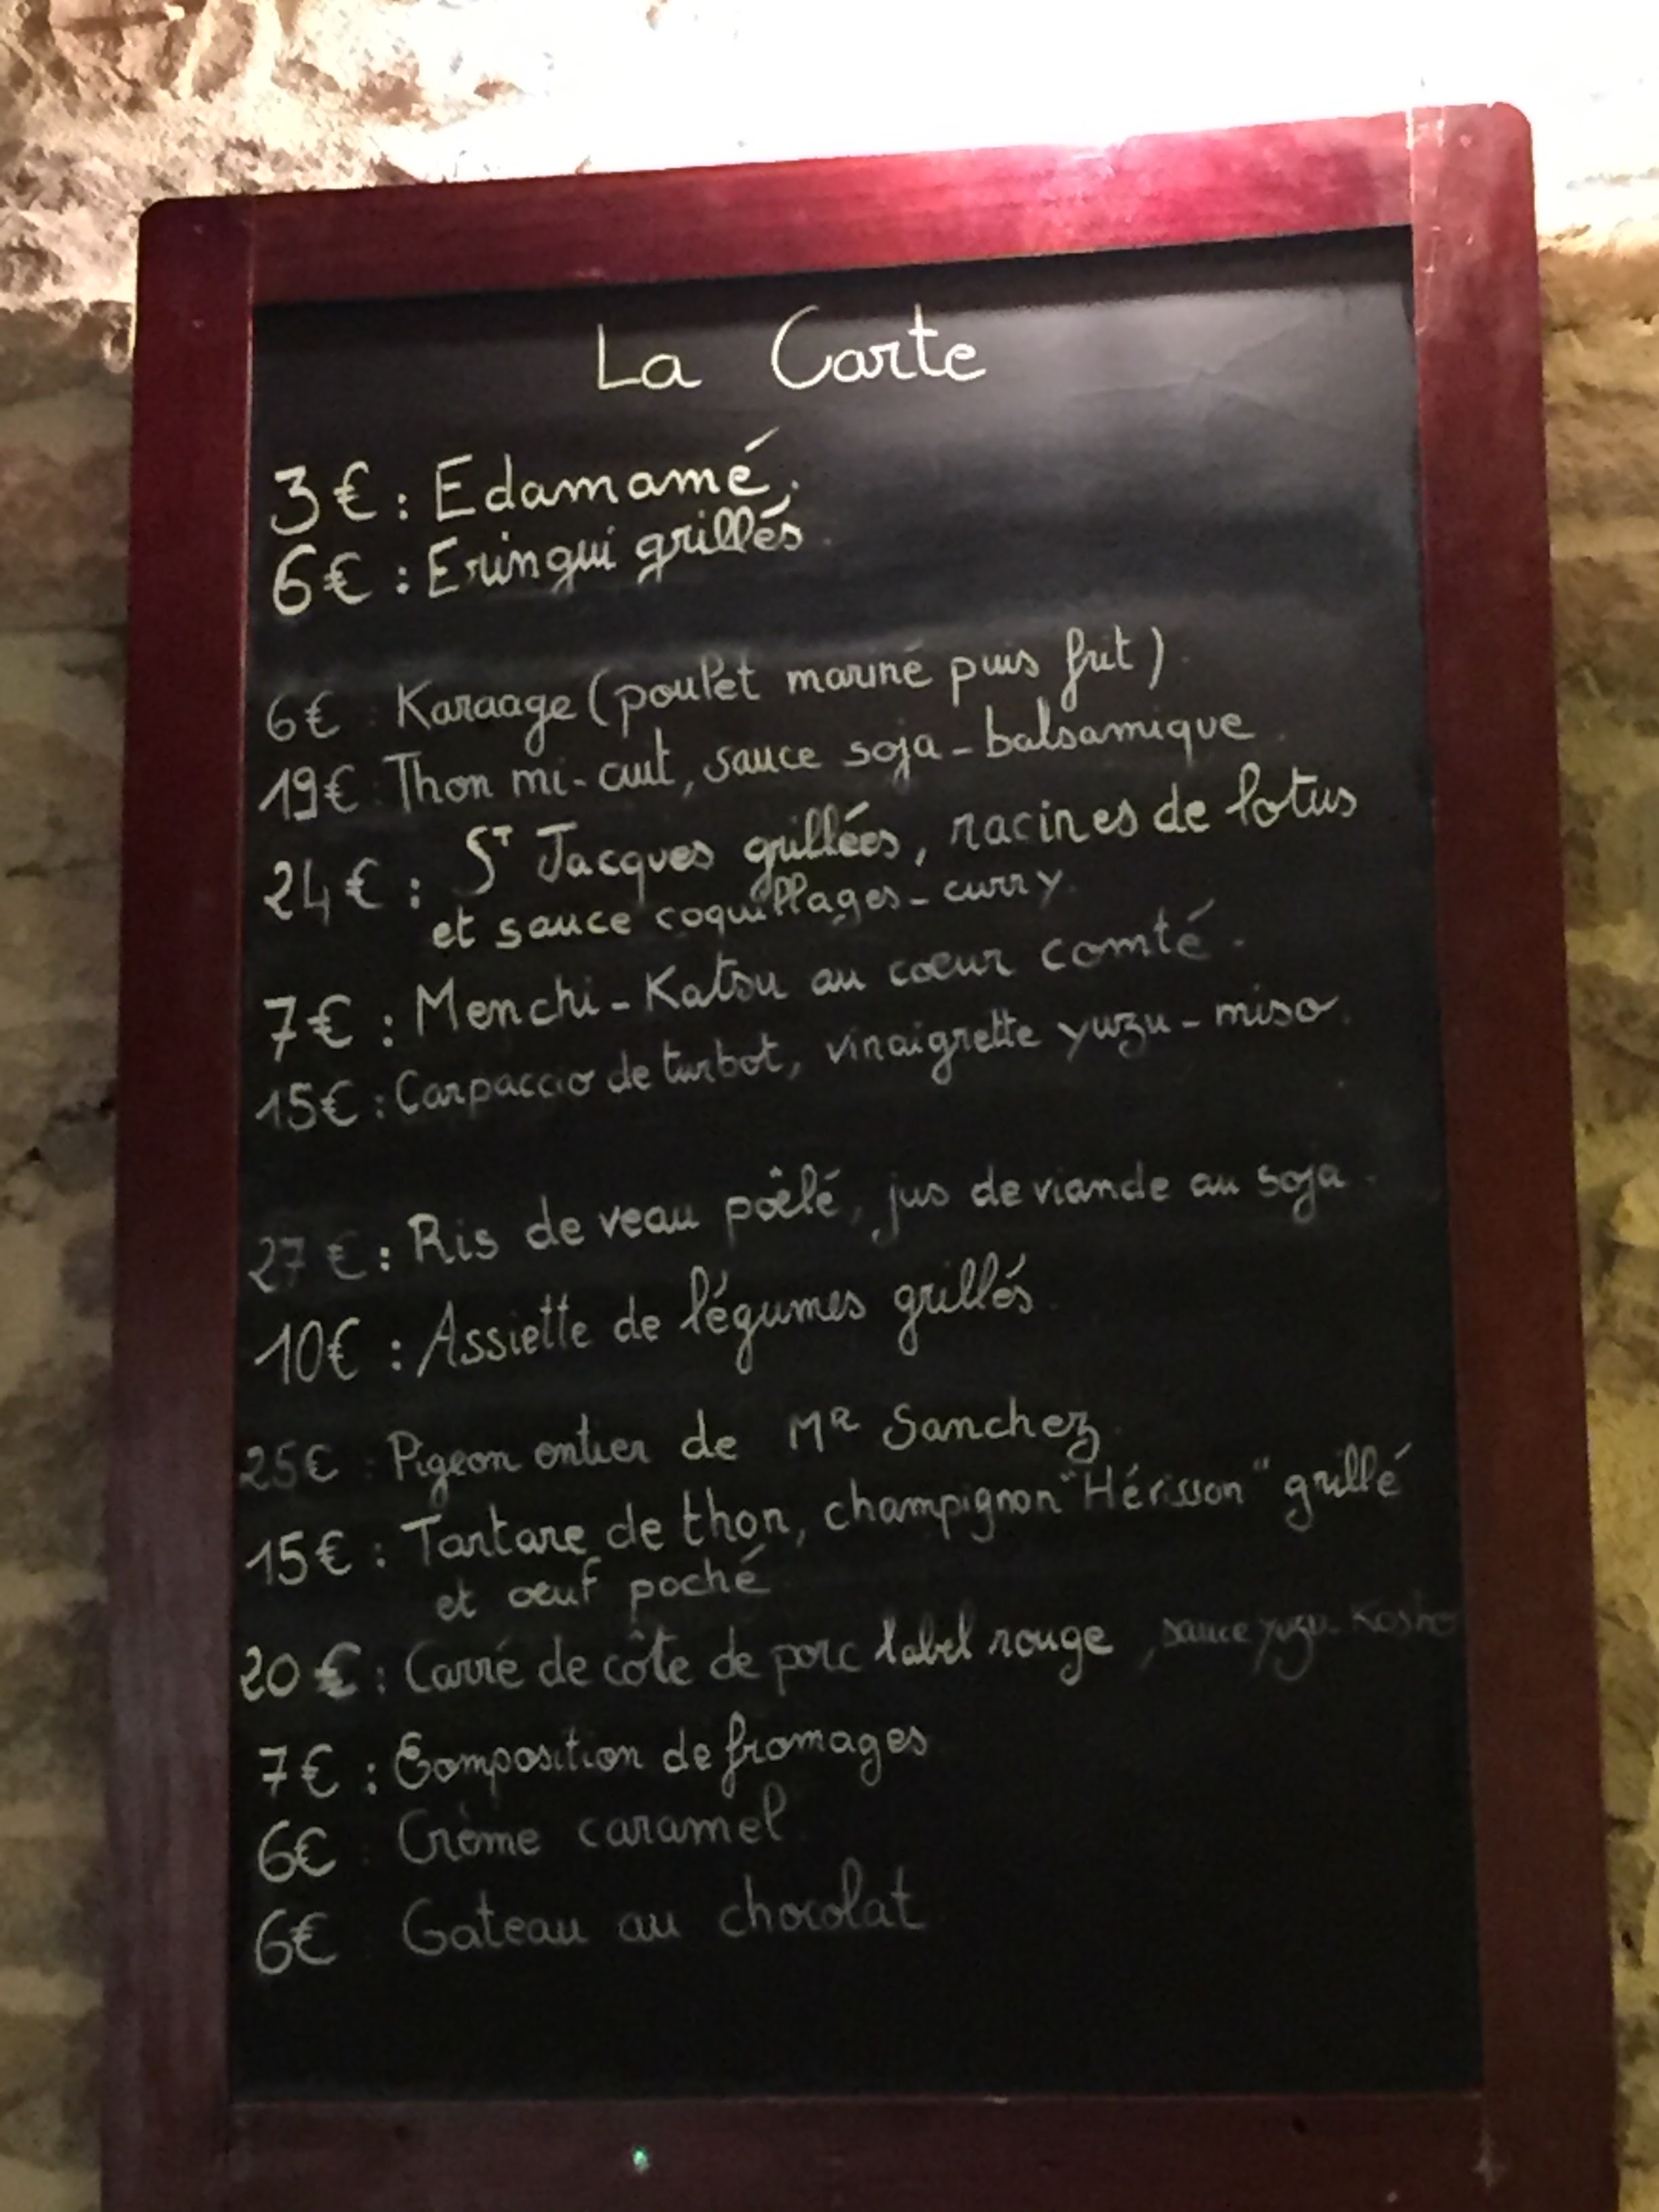 La Carte
3€ : Edamamé.
6€ : Eringui grillés.
6€ : Karaage (poulet mariné puis frit).
19€ : Thon mi-cuit, sauce soja-balsamique.
24€ : St Jacques grillées, racines de lotus
et sauce coquillages-curry.
7€ : Menchi-Katsu au coeur comté.
15€ : Carpaccio de turbot, vinaigrette yuzu-miso.
27€ : Ris de veau poêlé, jus de viande au soja.
10€ : Assiette de légumes grillés
25€ : Pigeon entier de MR Sanchez.
15€ : Tartare de thon, champignon "Hérisson" grillé
et œuf poché
20€ : Carré de côte de porc label rouge, sauce yuzu-Kosho
7€ : Composition de fromages
6€ : Crème caramel.
6€ : Gateau au chocolat.